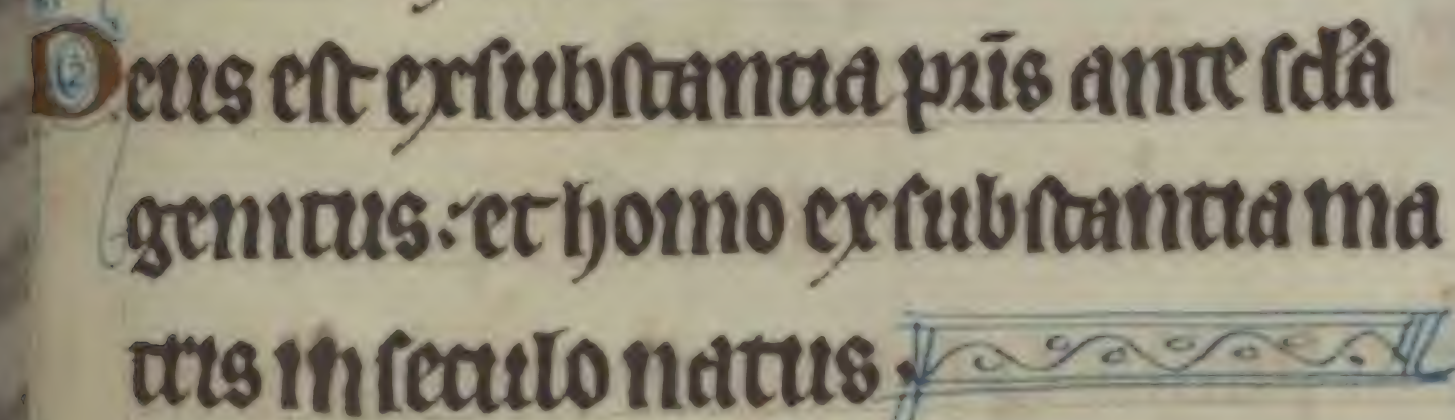 Deus est ex substantia pr̄is ante scl̓a
genitus: et homo ex substantia ma
tris in seculo natus.